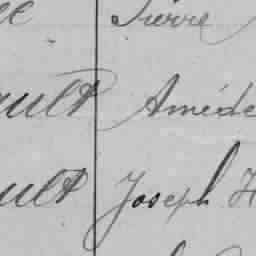 Pierre
ault Amédé
ault Joseph H